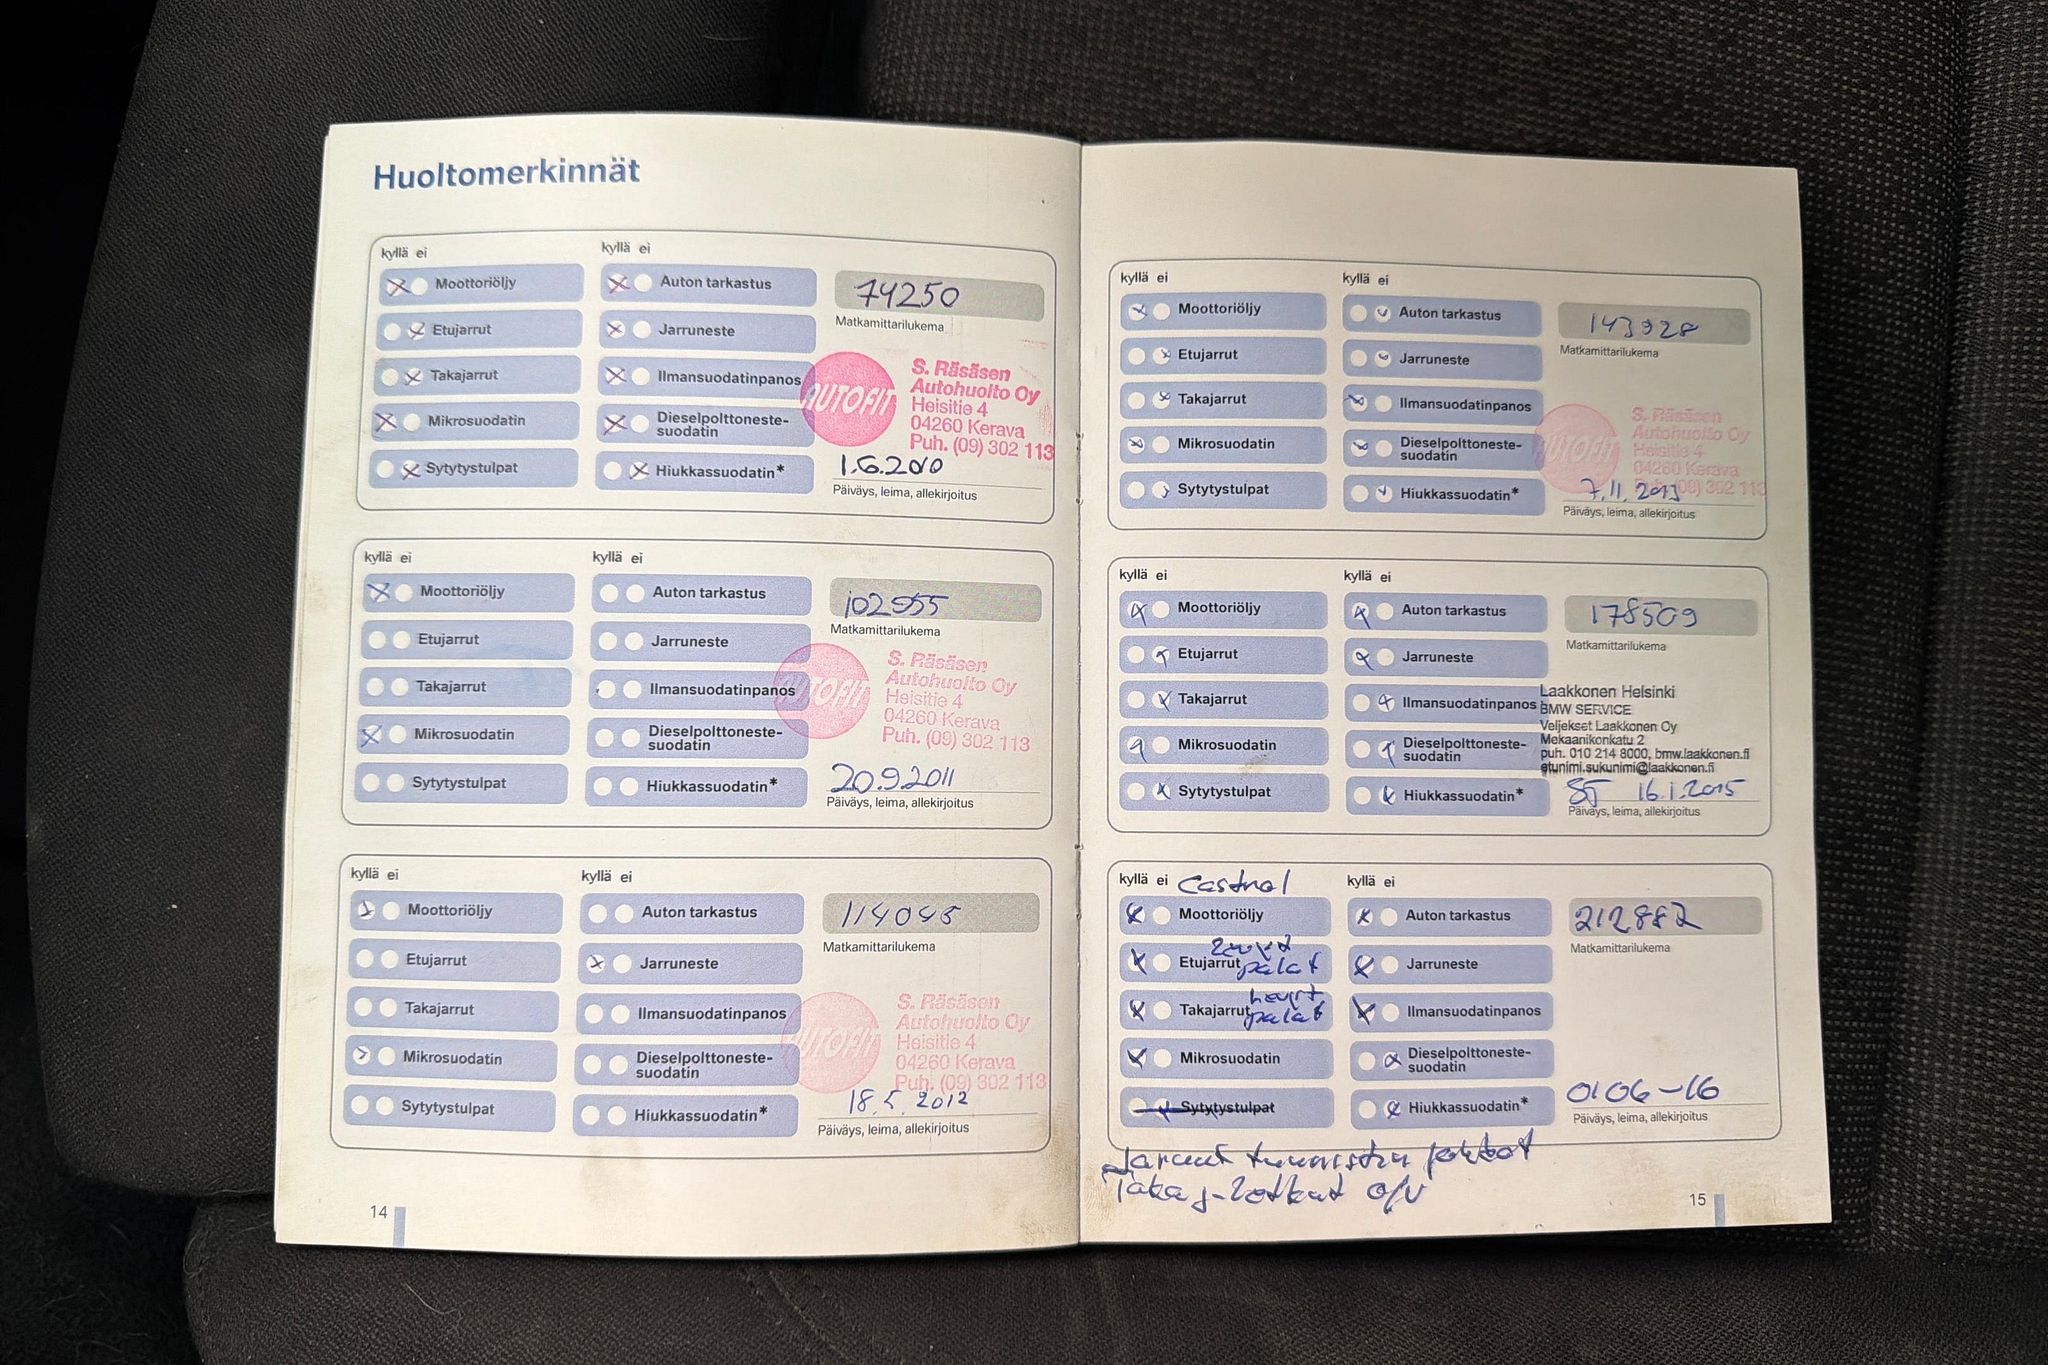 Huoltomerkinnät
kyllä ei
Moottoriöljy
Etujarrut
Takajarrut
Mikrosuodatin
Sytytystulpat
kyllä ei
Auton tarkastus
Jarruneste
Ilmansuodatinpanos
Dieselpolttoneste-
suodatin
Hiukkassuodatin*
74250
Matkamittarilukema
AUTOFIT
S. Räsäsen
Autohuolto Oy
Heisitie 4
04260 Kerava
Puh. (09) 302 113
1.6.2010
Päiväys, leima, allekirjoitus
kyllä ei
Moottoriöljy
Etujarrut
Takajarrut
Mikrosuodatin
Sytytystulpat
kyllä ei
Auton tarkastus
Jarruneste
Ilmansuodatinpanos
Dieselpolttoneste-
suodatin
Hiukkassuodatin*
102555
Matkamittarilukema
AUTOFIT
S. Räsäsen
Autohuolto Oy
Heisitie 4
04260 Kerava
Puh. (09) 302 113
20.9.2011
Päiväys, leima, allekirjoitus
kyllä ei
Moottoriöljy
Etujarrut
Takajarrut
Mikrosuodatin
Sytytystulpat
kyllä ei
Auton tarkastus
Jarruneste
Ilmansuodatinpanos
Dieselpolttoneste-
suodatin
Hiukkassuodatin*
114045
Matkamittarilukema
AUTOFIT
S. Räsäsen
Autohuolto Oy
Heisitie 4
04260 Kerava
Puh. (09) 302 113
18.5.2012
Päiväys, leima, allekirjoitus
14
kyllä ei
Moottoriöljy
Etujarrut
Takajarrut
Mikrosuodatin
Sytytystulpat
kyllä ei
Auton tarkastus
Jarruneste
Ilmansuodatinpanos
Dieselpolttoneste-
suodatin
Hiukkassuodatin*
143928
Matkamittarilukema
AUTOFIT
S. Räsäsen
Autohuolto Oy
Heisitie 4
04260 Kerava
Puh. (09) 302 113
7.11.2013
Päiväys, leima, allekirjoitus
kyllä ei
Moottoriöljy
Etujarrut
Takajarrut
Mikrosuodatin
Sytytystulpat
kyllä ei
Auton tarkastus
Jarruneste
Ilmansuodatinpanos
Dieselpolttoneste-
suodatin
Hiukkassuodatin*
178509
Matkamittarilukema
Laakkonen Helsinki
BMW SERVICE
Veljekset Laakkonen Oy
Mekaanikonkatu 2
puh. 010 214 8000, bmw.laakkonen.fi
etunimi.sukunimi@laakkonen.fi
16.1.2015
Päiväys, leima, allekirjoitus
kyllä ei Castrol
Moottoriöljy
Etujarrut palat
Takajarrut palat
Mikrosuodatin
Sytytystulpat
kyllä ei
Auton tarkastus
Jarruneste
Ilmansuodatinpanos
Dieselpolttoneste-
suodatin
Hiukkassuodatin*
212882
Matkamittarilukema
0106-16
Päiväys, leima, allekirjoitus
Taka j-letkut o/v
15